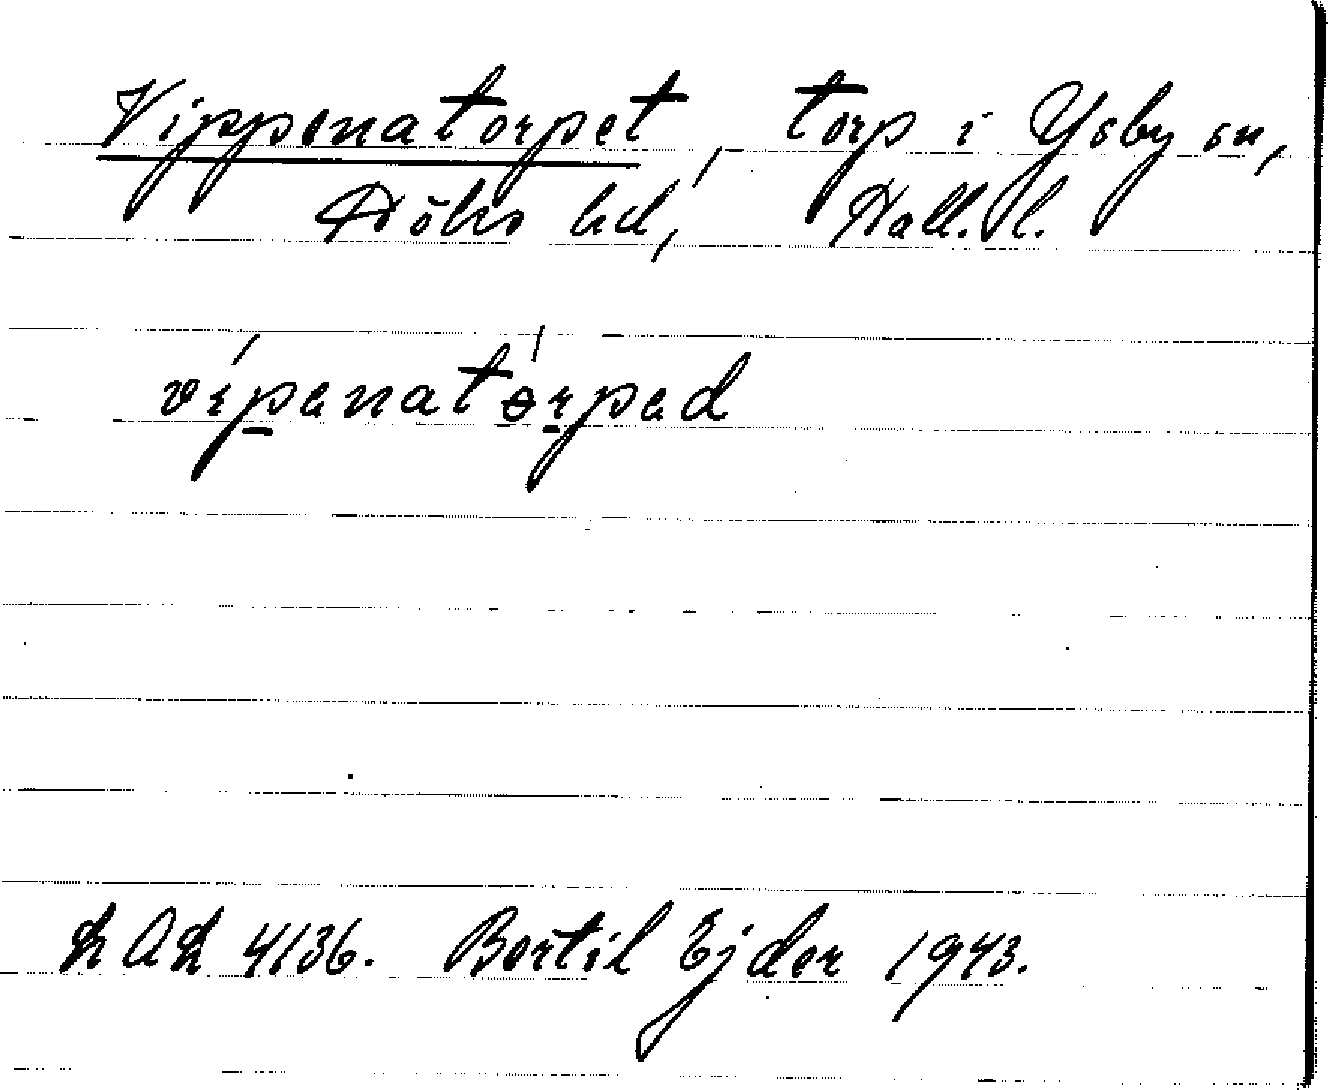 Vippenatorpet, torp i Ysby sn,
Höks hd, Hall. l.
vípenatɵ́rpad
LAL 4136. Bertil Ejder 1943.